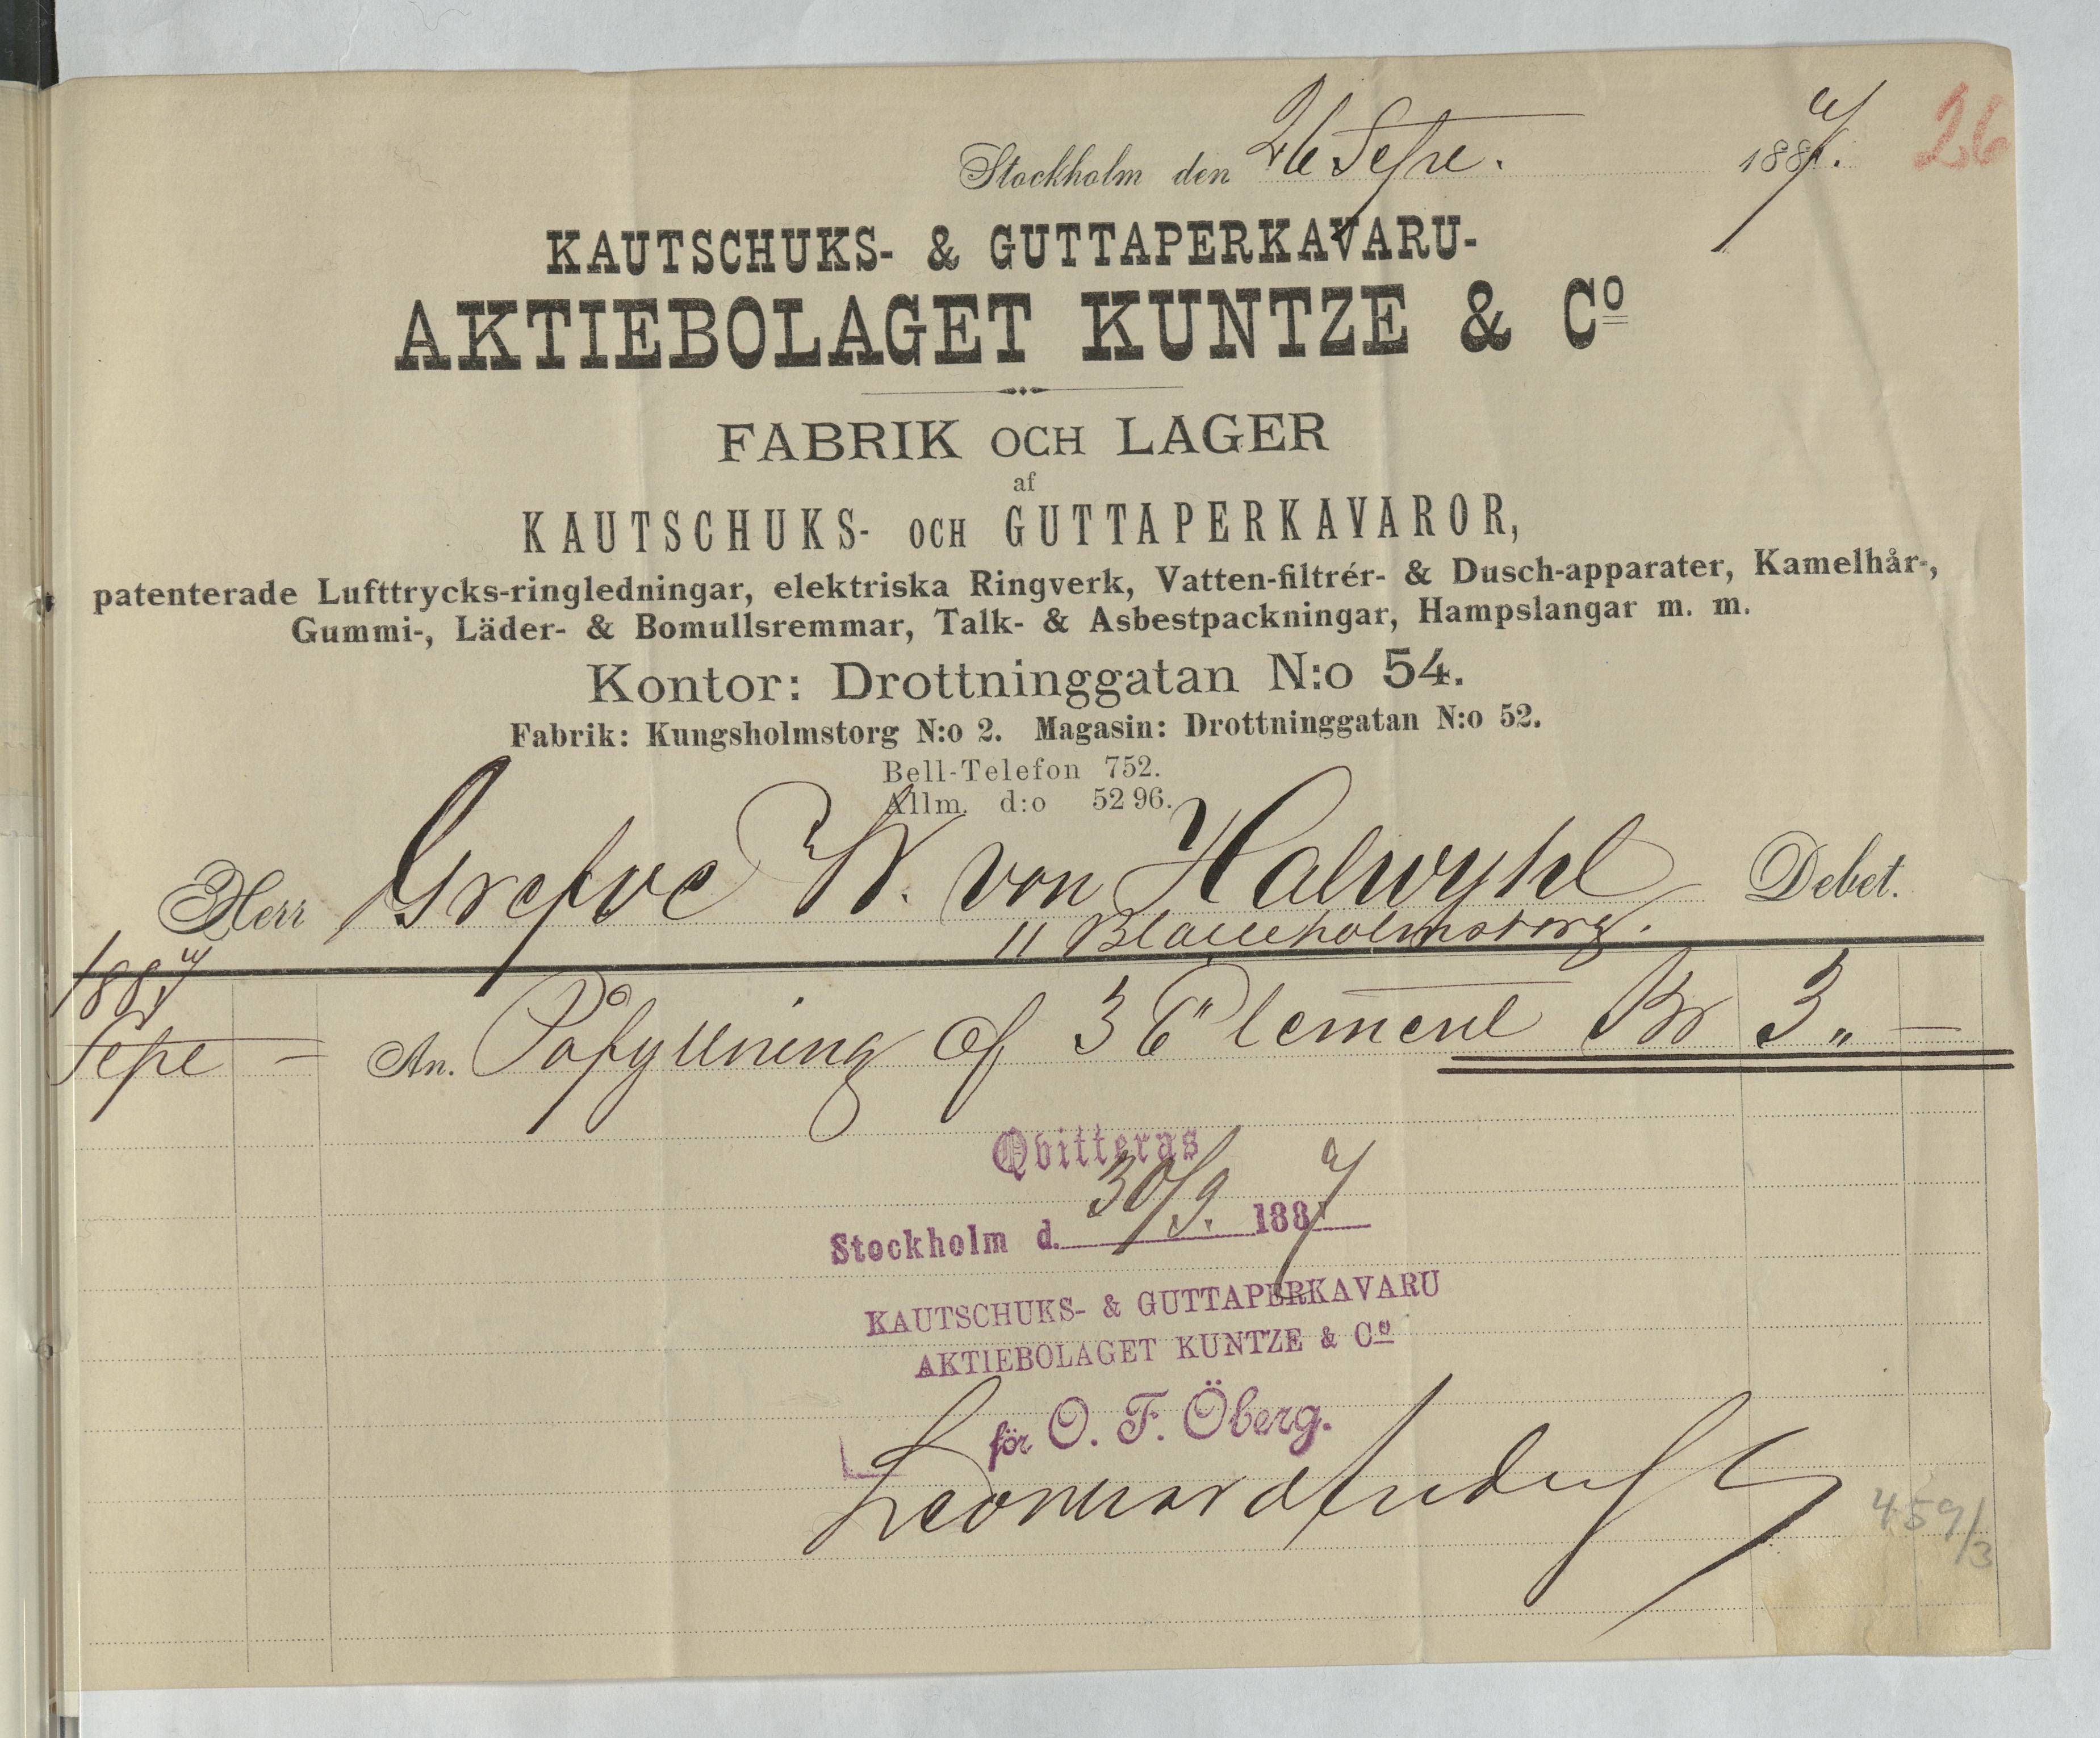 26
Stockholm den 26 Sept. 1889.
KAUTSCHUKS- & GUTTAPERKAVARU-
AKTIEBOLAGET KUNTZE & Cº
FABRIK OCH LAGER
af
KAUTSCHUKS- OCH GUTTAPERKAVAROR,
patenterade Lufttrycks-ringledningar, elektriska Ringverk, Vatten-filtrér- & Dusch-apparater, Kamelhår-,
Gummi-, Läder- & Bomullsremmar, Talk- & Asbestpackningar, Hampslangar m. m.
Kontor: Drottninggatan N:o 54.
Fabrik: Kungsholmstorg N:o 2. Magasin: Drottninggatan N:o 52.
Bell-Telefon 752.
Allm. d:o 52 96.
Herr Grefve W. von Halwyhl Debet.
11 Blaseeholmstorg.
1889
Sept — An. Påfyllning af 3 Element Kr 3 „ —
Qvitteras
Stockholm d. 30/9. 1889
KAUTSCHUKS- & GUTTAPERKAVARU
AKTIEBOLAGET KUNTZE & Cº
för O. F. Öberg.
Leonard
459/3